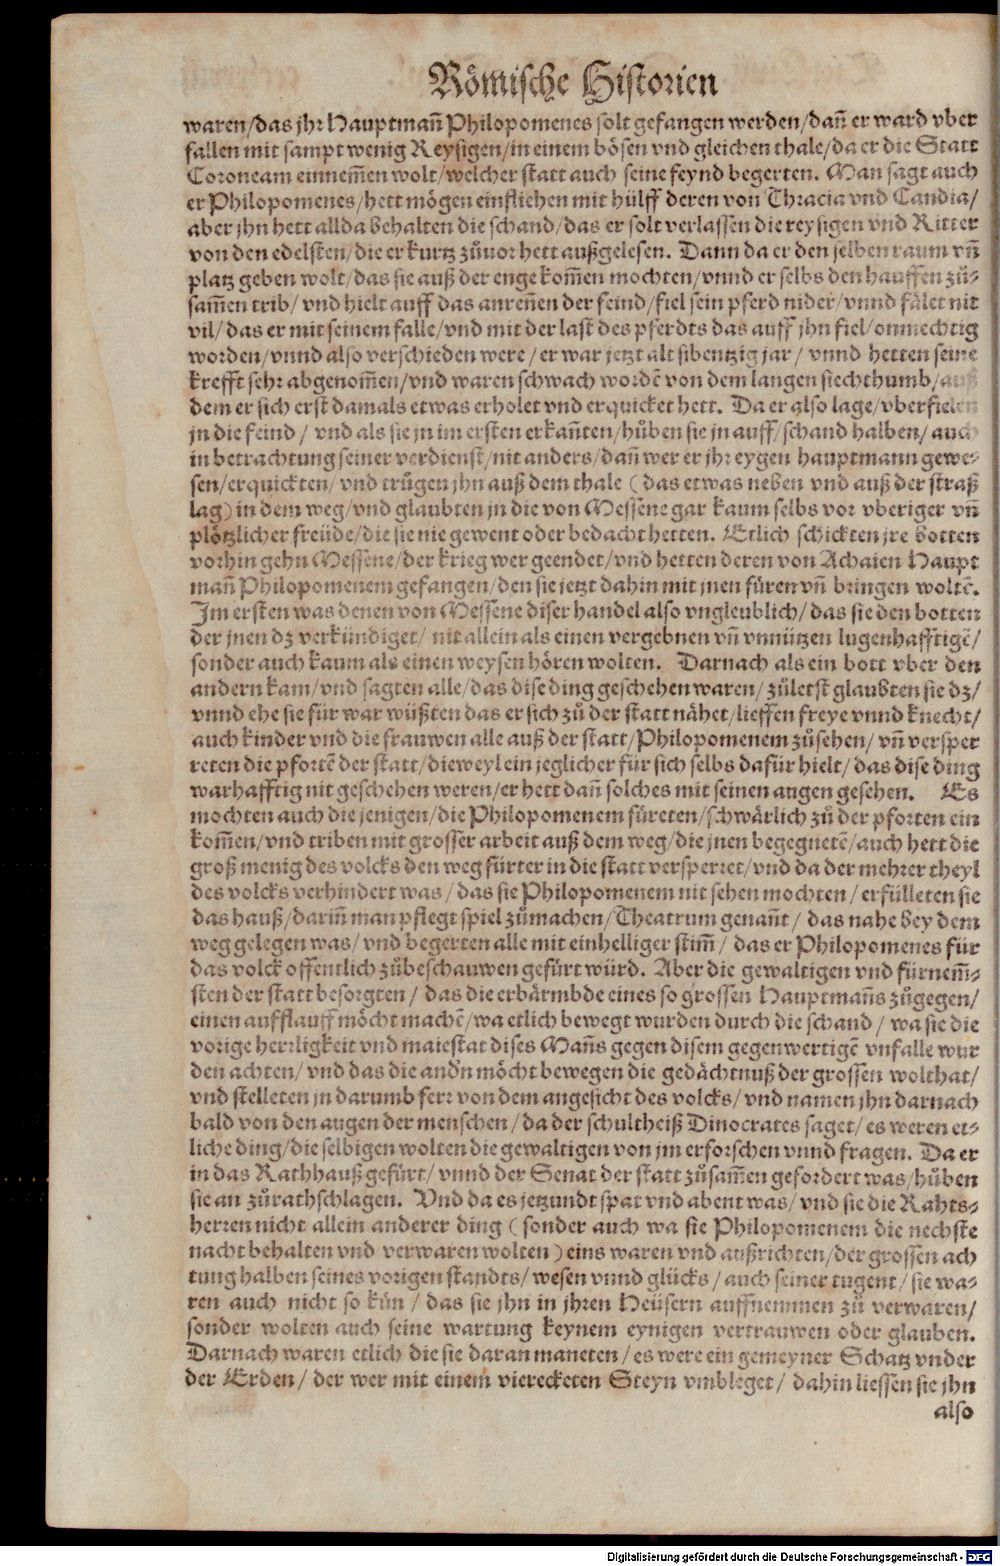 Römische Historien
waren/das jhr Hauptmañ Philopomenes solt gefangen werden/dañ er ward vber
fallen mit sampt wenig Reysigen/in einem bösen vnd gleichen thale/da er die Statt
Coroneam einnem̃en wolt/welcher statt auch seine feynd begerten. Man sagt auch
er Philopomenes/hett mögen einfliehen mit hülff deren von Thracia vnd Candia/
aber jhn hett allda behalten die schand/das er solt verlassen die reysigen vnd Ritter
von den edelsten/die er kurtz zůuor hett außgelesen. Dann da er den selben raum vñ
platz geben wolt/das sie auß der enge kom̃en mochten/vnnd er selbs den hauffen zů-
sam̃en trib/ vnd hielt auff das anreñen der feind/fiel sein pferd nider/vnnd fålet nit
vil/das er mit seinem falle/vnd mit der last des pferdts das auff jhn fiel/onmechtig
worden/vnnd also verschieden were/er war jetzt alt sibentzig jar/ vnnd hetten seine
krefft sehr abgenom̃en/vnd waren schwach wordẽ von dem langen siechthumb/auß
dem er sich erst damals etwas erholet vnd erquicket hett. Da er also lage/vberfielen
jn die feind/ vnd als sie jn im ersten erkañten/hůben sie jn auff/schand halben/auch
in betrachtung seiner verdienst/nit anders/dañ wer er jhr eygen hauptmann gewe-
sen/erquickten/vnd trůgen jhn auß dem thale (das etwas neben vnd auß der straß
lag) in dem weg/vnd glaubten jn die von Messene gar kaum selbs vor vberiger vñ
plötzlicher freüde/die sie nie gewent oder bedacht hetten. Etlich schickten jre botten
vorhin gehn Messene/der krieg wer geendet/vnd hetten deren von Achaien Haupt
mañ Philopomenem gefangen/den sie jetzt dahin mit jnen füren vñ bringen woltẽ.
Im ersten was denen von Messene diser handel also vngleublich/das sie den botten
der jnen dz verkündiget/ nit allein als einen vergebnen vñ vnnützen lugenhafftigẽ/
sonder auch kaum als einen weysen hören wolten. Darnach als ein bott vber den
andern kam/vnd sagten alle/das dise ding geschehen waren/zůletst glaubten sie dz/
vnnd ehe sie für war wüßten das er sich zů der statt nähet/lieffen freye vnnd knecht/
auch kinder vnd die frauwen alle auß der statt/Philopomenem zůsehen/vñ versper
reten die pfortẽ der statt/dieweyl ein jeglicher für sich selbs dafür hielt/das dise ding
warhafftig nit geschehen weren/er hett dañ solches mit seinen augen gesehen. Es
mochten auch die jenigen/die Philopomenem füreten/schwärlich zů der pforten ein
kom̃en/vnd triben mit grosser arbeit auß dem weg/die jnen begegnetẽ/auch hett die
groß menig des volcks den weg fürter in die statt versperret/vnd da der mehrer theyl
des volcks verhindert was/das sie Philopomenem nit sehen mochten/erfülleten sie
das hauß/dariñ man pflegt spiel zůmachen/Theatrum genañt/das nahe bey dem
weg gelegen was/vnd begerten alle mit einhelliger stim̃/ das er Philopomenes für
das volck offentlich zůbeschauwen gefürt würd. Aber die gewaltigen vnd fürnem̃-
sten der statt besorgten/ das die erbärmbde eines so grossen Hauptmañs zůgegen/
einen aufflauff möcht machẽ/wa etlich bewegt wurden durch die schand/ wa sie die
vorige herrligkeit vnd maiestat dises Mañs gegen disem gegenwertigẽ vnfalle wur
den achten/ vnd das die andn möcht bewegen die gedächtnuß der grossen wolthat/
vnd stelleten jn darumb ferr von dem angesicht des volcks/vnd namen jhn darnach
bald von den augen der menschen/da der schultheiß Dinocrates saget/es weren et-
liche ding/die selbigen wolten die gewaltigen von jm erforschen vnnd fragen. Da er
in das Rathhauß gefürt/vnnd der Senat der statt zůsam̃en gefordert was/hůben
sie an zůrathschlagen. Vnd da es jetzundt spat vnd abent was/vnd sie die Rahts-
herren nicht allein anderer ding (sonder auch wa sie Philopomenem die nechste
nacht behalten vnd verwaren wolten) eins waren vnd außrichten/der grossen ach
tung halben seines vorigen standts/wesen vnnd glücks/auch seiner tugent/sie wa-
ren auch nicht so kün/ das sie jhn in jhren Heüsern auffnemmen zů verwaren/
sonder wolten auch seine wartung keynem eynigen vertrauwen oder glauben.
Darnach waren etlich die sie daran maneten/es were ein gemeyner Schatz vnder
der Erden/ der wer mit einem vierecketen Steyn vmbleget/ dahin liessen sie jhn
also
Digitalisierung gefördert durch die Deutsche Forschungsgemeinschaft - DFG